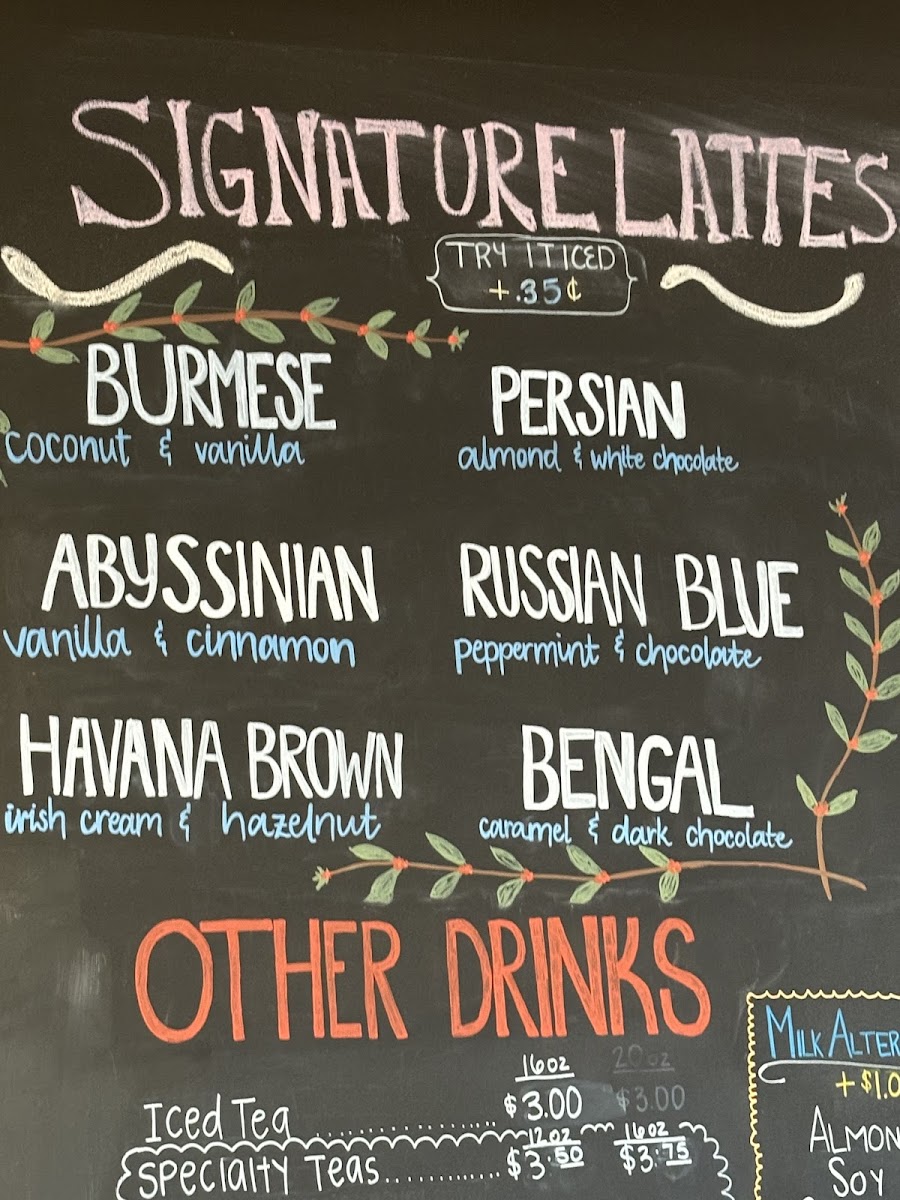 SIGNATURE LATTES
TRY IT ICED
+.35¢
BURMESE
coconut & vanilla
PERSIAN
almond & white chocolate
ABYSSINIAN
vanilla & cinnamon
RUSSIAN BLUE
peppermint & chocolate
HAVANA BROWN
irish cream & hazelnut
BENGAL
caramel & dark chocolate
OTHER DRINKS
16oz 20oz
Iced Tea .............. $3.00 $3.00
12oz 16oz
Specialty Teas........... $3.50 $3.75
MILK ALTER
+$1.0
ALMON
SOY